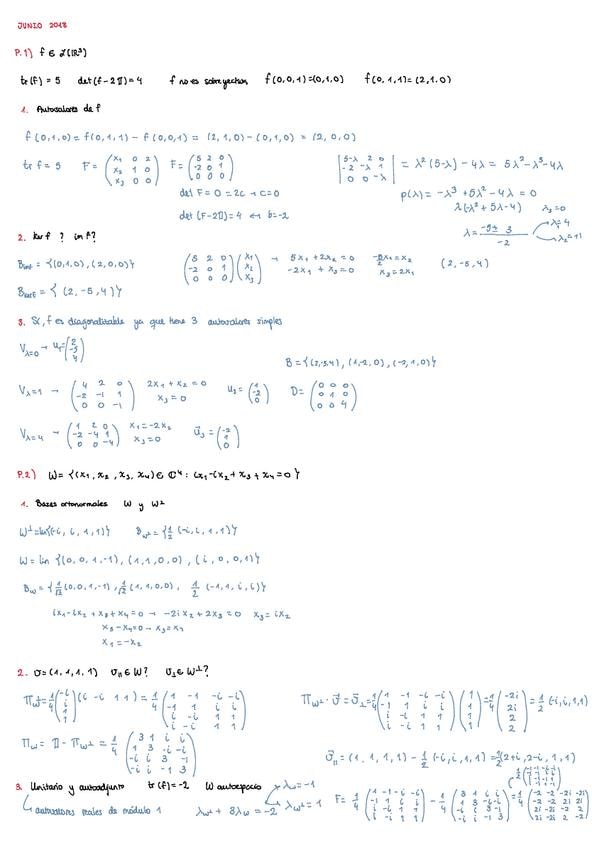 JUNIO 2018
P.1) f ∈ L(ℝ³)
tr(f) = 5 det(f-2𝟙) = 4 f no es sobreyectiva f(0,0,1)=(0,1,0) f(0,1,1)=(2,1,0)
1. Autovalores de f
f(0,1,0) = f(0,1,1) - f(0,0,1) = (2,1,0) - (0,1,0) = (2,0,0)
tr f = 5 F = (x₁ 0 2; x₂ 1 0; x₃ 0 0) F = (5 2 0; -2 0 1; 0 0 0) |5-λ 2 0; -2 -λ 1; 0 0 -λ| = λ²(5-λ) - 4λ = 5λ²-λ³-4λ
det F = 0 = 2c → c=0 p(λ) = -λ³+5λ²-4λ = 0
λ(-λ²+5λ-4) λ₃=0
det(F-2𝟙)=4 ↔ b=-2 λ = (-5 ± 3)/-2 λ₁=4 λ₂=+1
2. Ker f ? im f?
B_imf = {(0,1,0), (2,0,0)} (5 2 0; -2 0 1; 0 0 0)(x₁; x₂; x₃) → 5x₁+2x₂=0 -5/2 x₁=x₂ (2,-5,4)
-2x₁+x₃=0 x₃=2x₁
B_kerf = {(2,-5,4)}
3. Sí, f es diagonalizable ya que tiene 3 autovalores simples
V_λ=0 → u₁=(2; -5; 4)
B = {(2,-5,4), (1,-2,0), (-2,1,0)}
V_λ=1 → (4 2 0; -2 -1 1; 0 0 -1) 2x₁+x₂=0 x₃=0 u₂=(1; -2; 0) D=(0 0 0; 0 1 0; 0 0 4)
V_λ=4 → (1 2 0; -2 -4 1; 0 0 -4) x₁=-2x₂ x₃=0 u⃗₃=(-2; 1; 0)
P.2) W = {(x₁,x₂,x₃,x₄) ∈ ℂ⁴ : ix₁-ix₂+x₃+x₄=0}
1. Bases ortonormales W y W⊥
W⊥=lin{(-i, i, 1, 1)} B_w⊥ = {1/2 (-i, i, 1, 1)}
W = lin {(0,0,1,-1), (1,1,0,0), (i,0,0,1)}
B_w = {1/√2 (0,0,1,-1), 1/√2 (1,1,0,0), 1/2 (-1,1,i,i)}
ix₁-ix₂+x₃+x₄=0 → -2ix₂+2x₃=0 x₃=ix₂
x₃-x₄=0 → x₃=x₄
x₁=-x₂
2. v=(1,1,1,1) v∥ ∈ W? v⊥ ∈ W⊥?
Π_w⊥=1/4 (-i; i; 1; 1)(i -i 1 1) = 1/4 (1 -1 -i -i; -1 1 i i; i -i 1 1; i -i 1 1) Π_w⊥·v⃗=v⃗⊥=1/4 (1 -1 -i -i; -1 1 i i; i -i 1 1; i -i 1 1)(1; 1; 1; 1)=1/4 (-2i; 2i; 2; 2) = 1/2 (-i,i,1,1)
Π_w = 𝟙 - Π_w⊥ = 1/4 (3 1 i i; 1 3 -i -i; -i i 3 -1; -i i -1 3)
v⃗∥ = (1,1,1,1) - 1/2 (-i,i,1,1) = 1/2 (2+i, 2-i, 1, 1)
3. Unitario y autoadjunto tr(f)=-2 W autoespacio λw=-1 λw⊥=1
autovalores reales de módulo 1 λw⊥ + 3λw = -2 F = 1/4 (1 -1 -i -i; -1 1 i i; i -i 1 1; i -i 1 1) - 1/4 (3 1 i i; 1 3 -i -i; -i i 3 -1; -i i -1 3) = 1/4 (-2 -2 -2i -2i; -2 -2 2i 2i; 2i -2i -2 2; 2i -2i 2 -2)